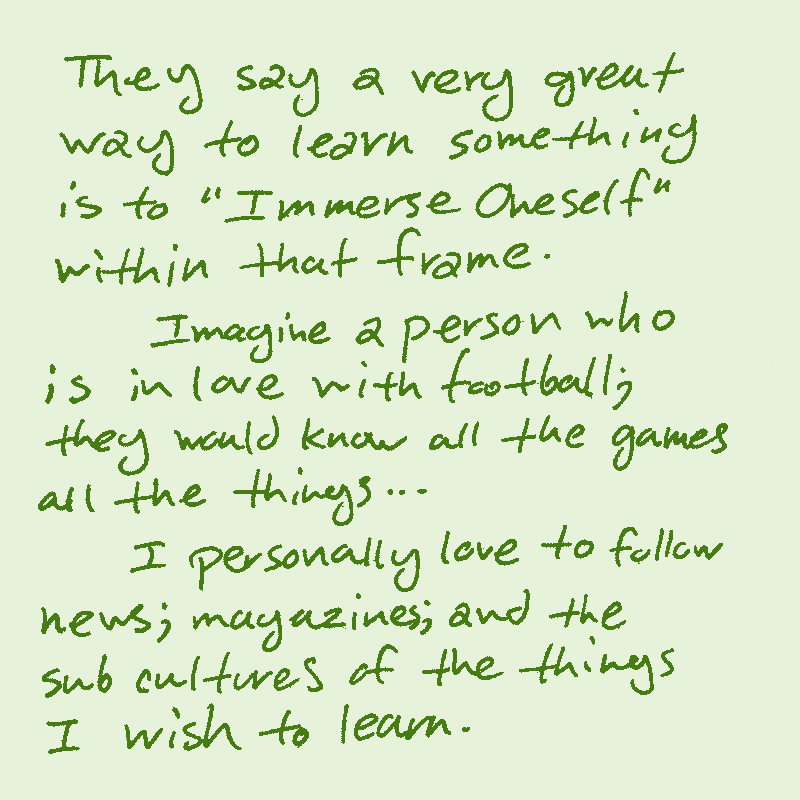 They say a very great
way to learn something
is to "Immerse Oneself"
within that frame.
Imagine a person who
is in love with football;
they would know all the games
all the things...
I personally love to follow
news; magazines; and the
sub cultures of the things
I wish to learn.